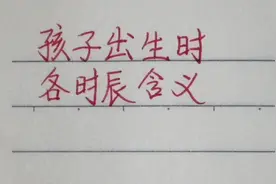 孩子出生时
各时辰含义